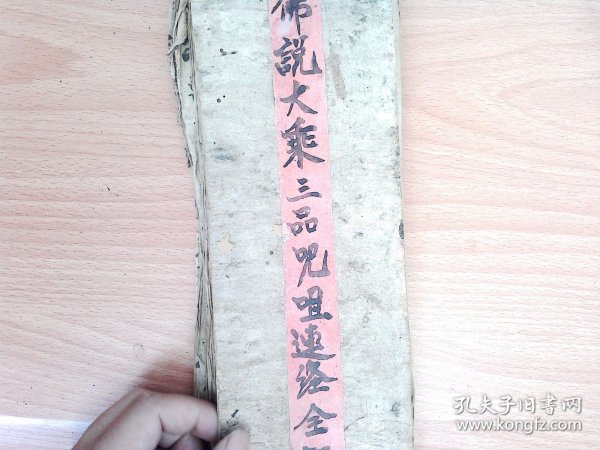 佛説大乘三品咒咀連経全
孔夫子旧书网
www.kongfz.com